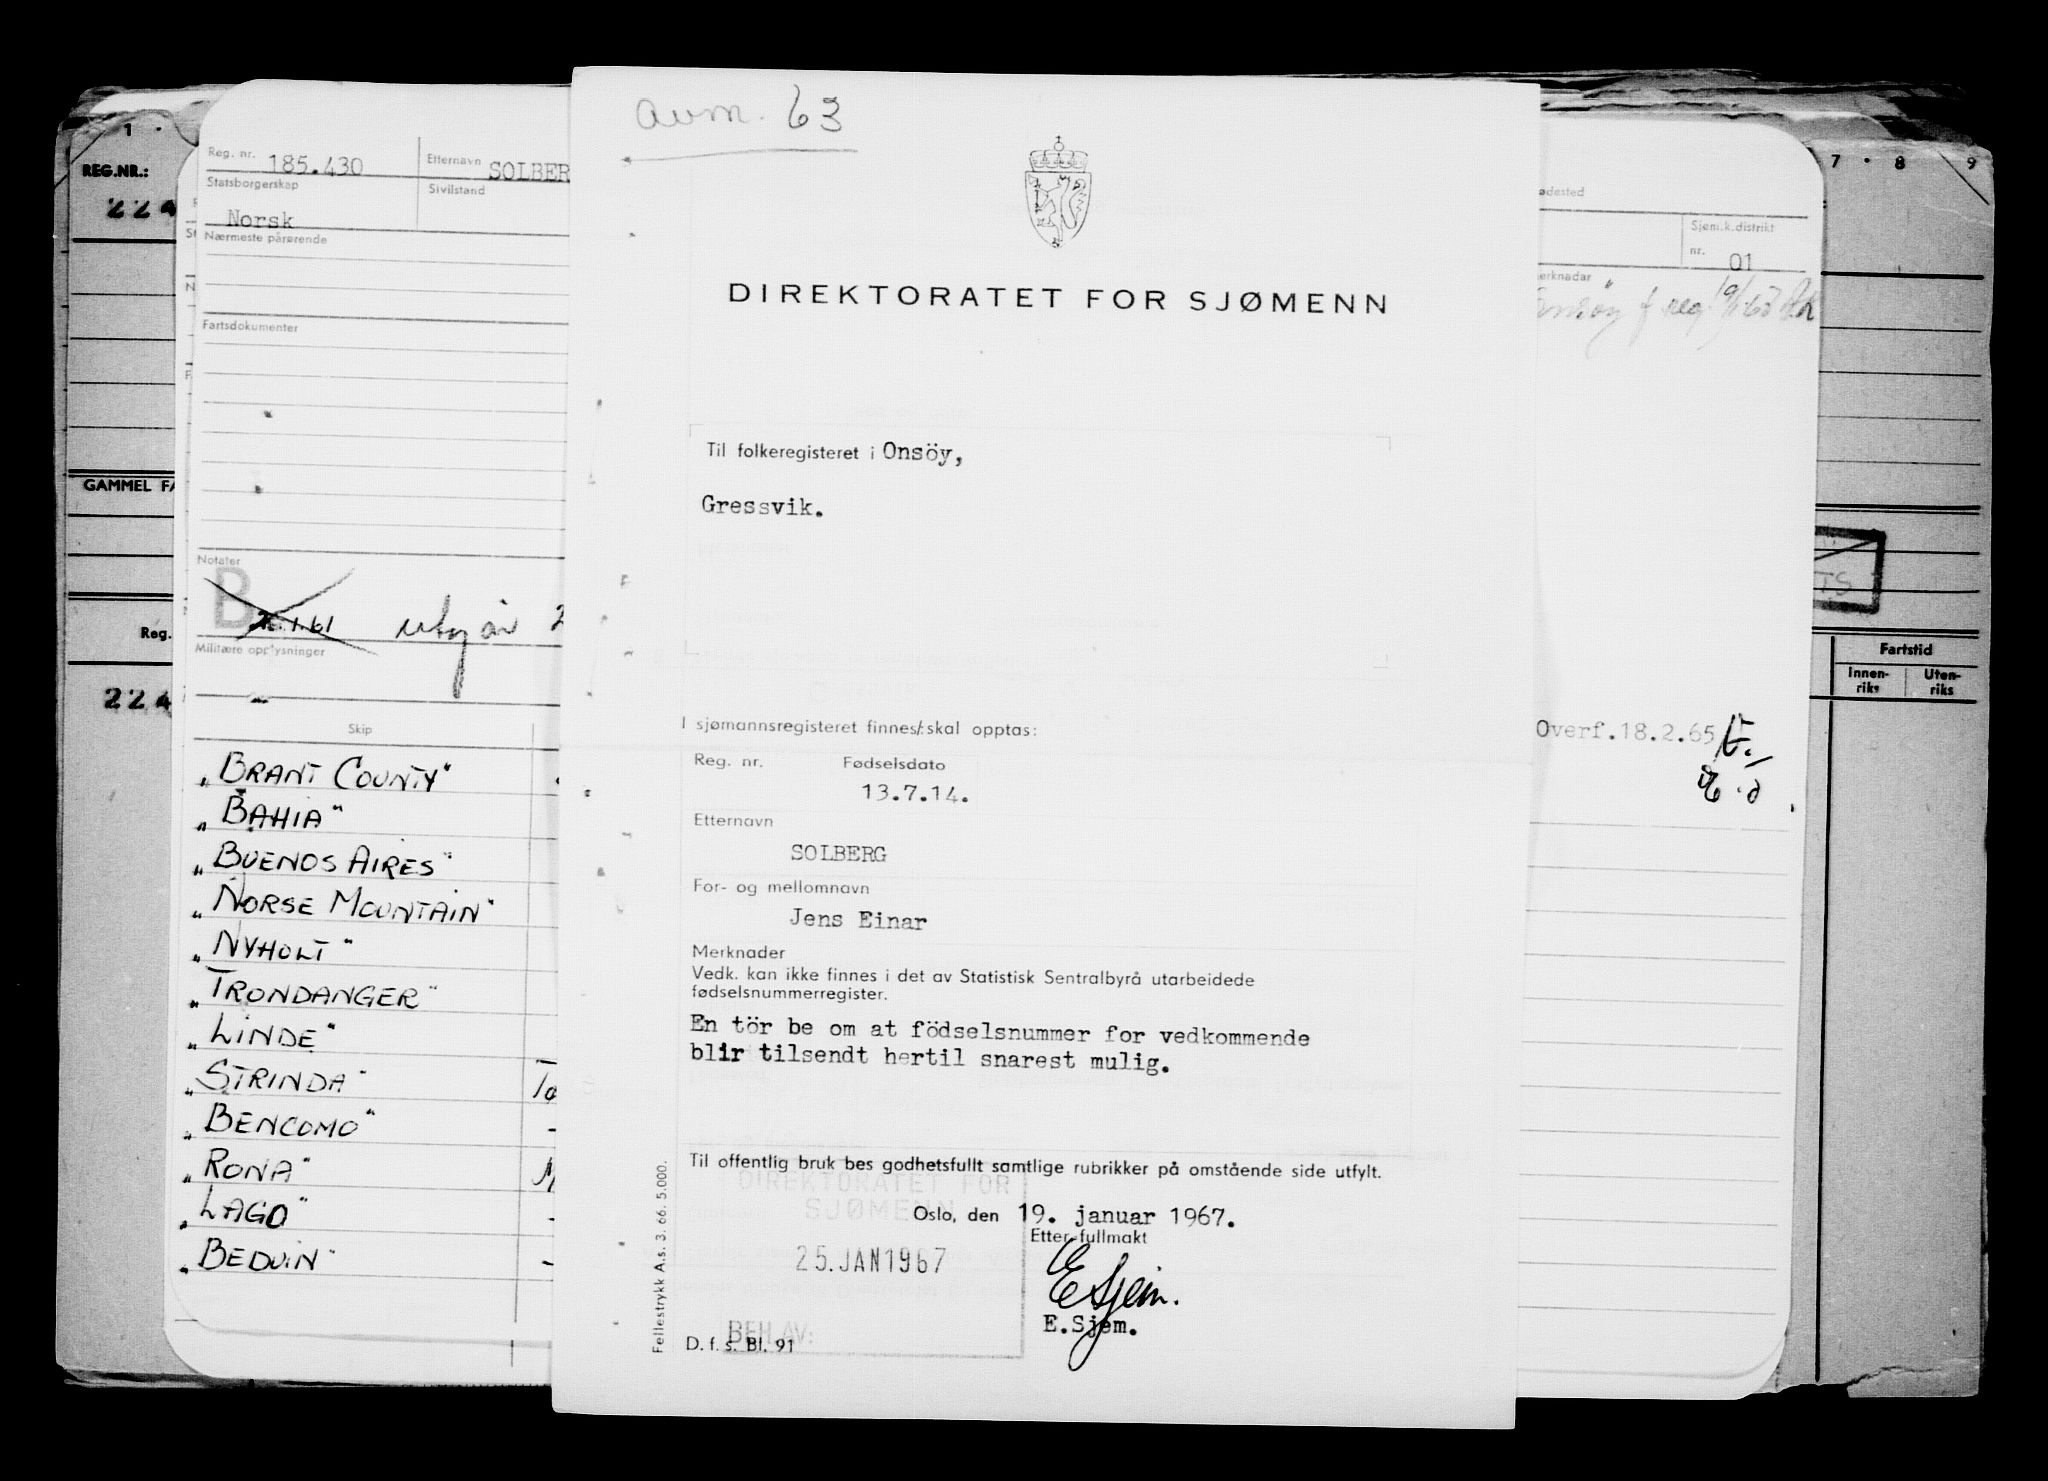 avm. 63
DIREKTORATET FOR SJØMENN
Til folkeregisteret i Onsöy,
Gressvik.
I sjømannsregisteret finnes/skal opptas:
Reg. nr. Fødselsdato
13.7.14.
Etternavn
SOLBERG
For- og mellomnavn
Jens Einar
Merknader
Vedk. kan ikke finnes i det av Statistisk Sentralbyrå utarbeidede
fødselsnummerregister.
En tör be om at födselsnummer for vedkommende
blir tilsendt hertil snarest mulig.
Til offentlig bruk bes godhetsfullt samtlige rubrikker på omstående side utfylt.
DIREKTORATET FOR
SJØMENN
Oslo, den 19. januar 1967.
Etter fullmakt
25.JAN1967
E Sjem.
E.Sjem.
BEH.AV:
D. f. s. Bl. 91
Fellestrykk A.s. 3. 66. 5.000.
1
REG.NR.:
224
GAMMEL FA
Reg.
224
Reg. nr. 185.430
Etternavn SOLBER
Statsborgerskap
Norsk
Sivilstand
Nærmeste pårørende
Fartsdokumenter
Notater
B
1.61
utg år 2
Militære opplysninger
Skip
„BRANT COUNTY"
„BAHIA"
„BUENOS AIRES"
„NORSE MOUNTAIN"
„NYHOLT"
„TRONDANGER"
„LINDE"
„STRINDA"
„BENCOMO"
„RONA"
„LAGO"
„BEDUIN"
ødested
Sjøm.k.distrikt
nr. 01
merknadar
Overf.18.2.65
7 · 8 9
TS
Fartstid
Innen-
riks
Uten-
riks